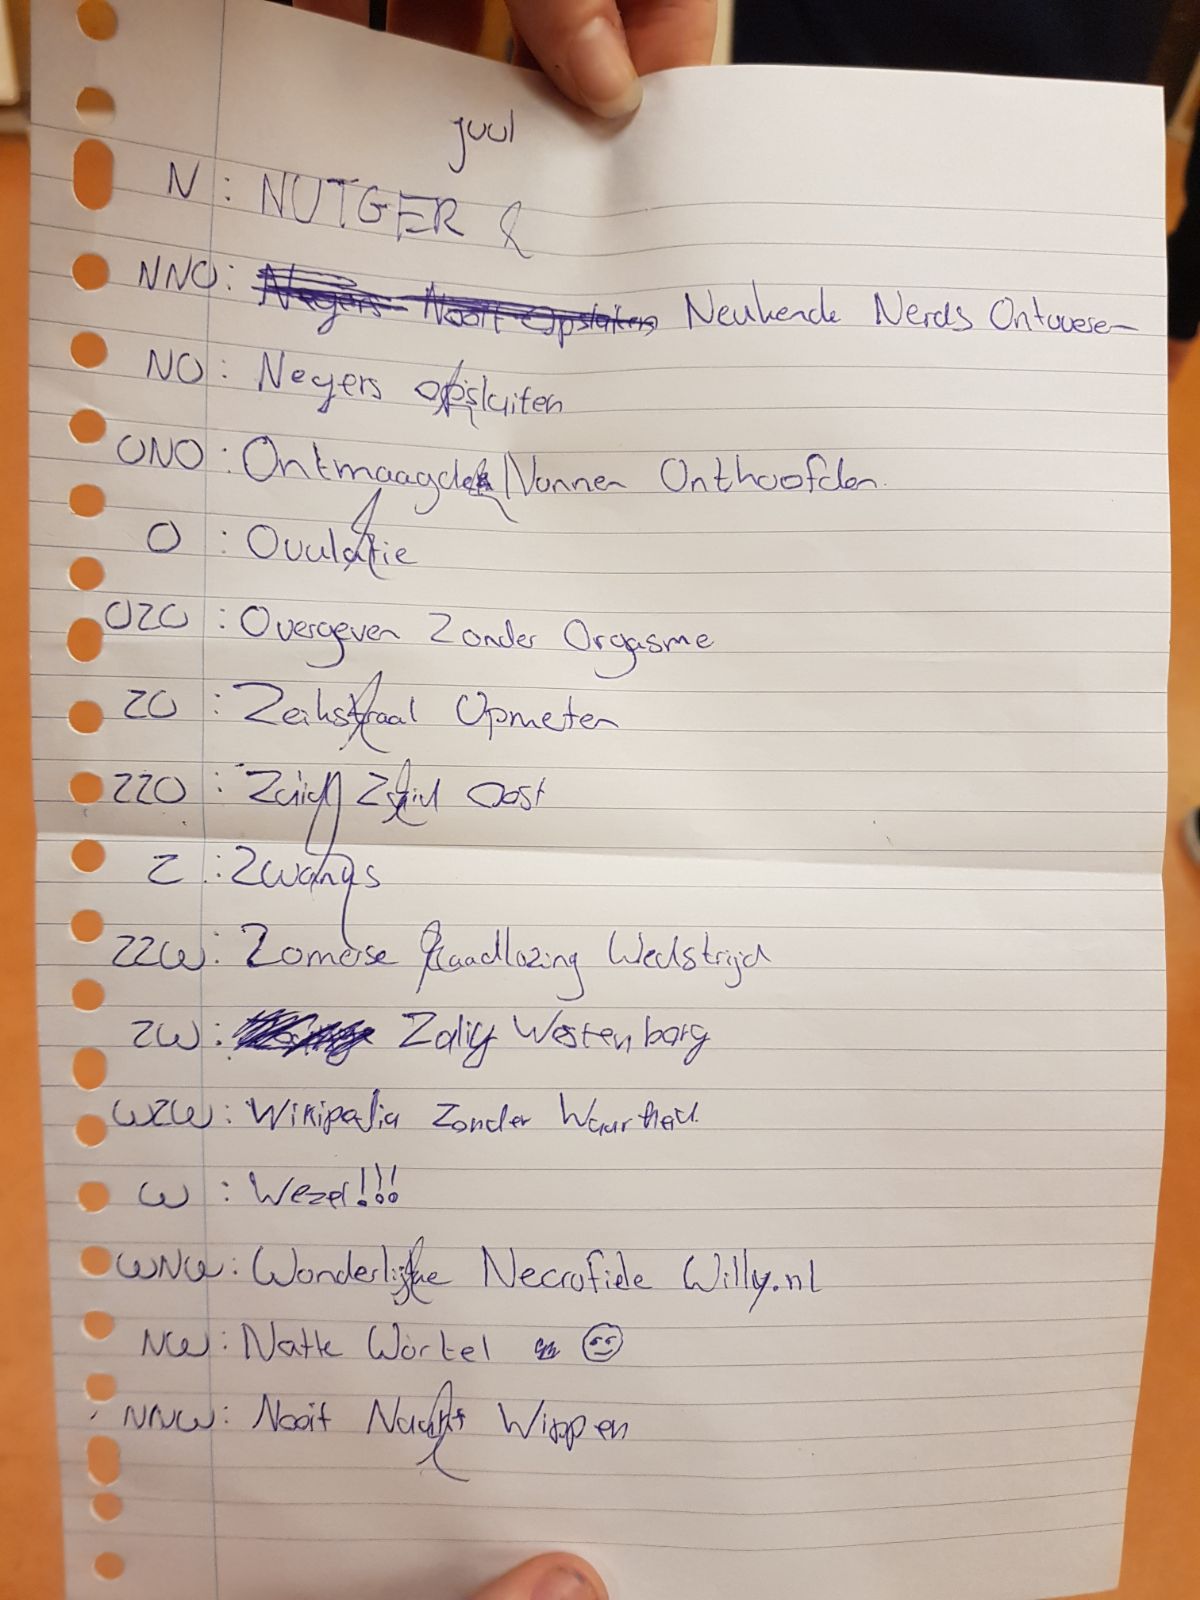 juul
N : NUTGER &
NNO : Negers Nooit Opsluiten Neukende Nerds Ontwese-
NO : Negers opsluiten
ONO : Ontmaagde Nonnen Onthoofden.
O : Ovulatie
OZO : Overgeven Zonder Orgasme
ZO : Zeikstraal Opmeten
ZZO : Zuid Zuid Oost
Z : Zwangs
ZZW : Zomerse Zaadlozing Wedstrijd
ZW : Zalig Westenborg
WZW : Wikipedia Zonder Waarheid.
W : Wezel!!!
WNW : Wonderlijke Necrofiele Willy.nl
NW : Natte Wortel
NNW : Nooit Naakt Wippen